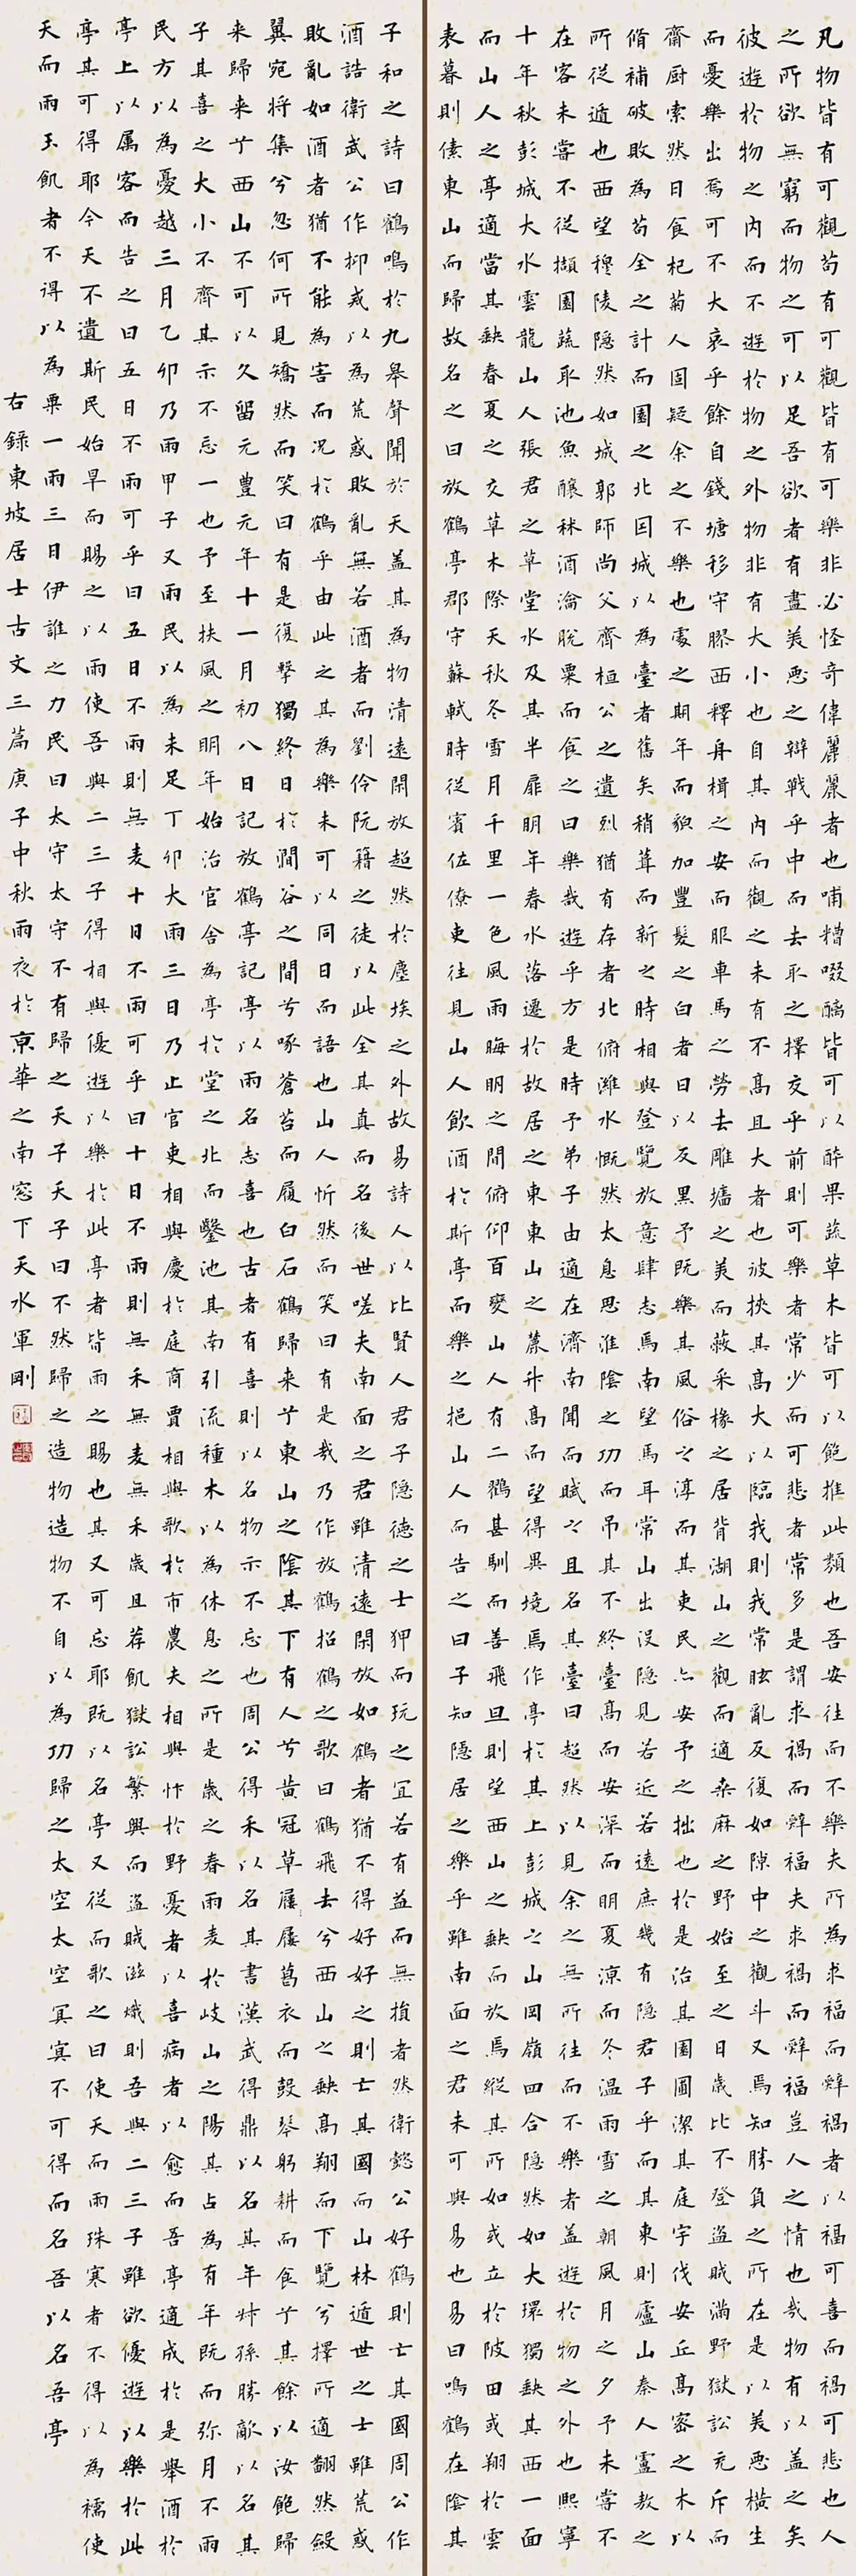 凡物皆有可觀苟有可觀皆有可樂非必怪奇偉麗麗者也哺糟啜醨皆可以醉果蔬草木皆可以飽推此類也吾安往而不樂夫所為求福而辤禍者以福可喜而禍可悲也人
之所欲無窮而物之可以足吾欲者有盡美惡之辯戰乎中而去取之擇交乎前則可樂者常少而可悲者常多是謂求禍而辤福夫求禍而辤福豈人之情也哉物有以蓋之矣
彼遊於物之内而不遊於物之外物非有大小也自其内而觀之未有不高且大者也彼挾其高大以臨我則我常眩亂反復如隙中之觀斗又焉知勝負之所在是以美惡橫生
而憂樂出焉可不大哀乎餘自錢塘移守膠西釋舟楫之安而服車馬之勞去雕墻之美而蔽采椽之居背湖山之觀而適桑麻之野始至之日歲比不登盜賊滿野獄訟充斥而
齋厨索然日食杞菊人固疑余之不樂也處之期年而貌加豐髮之白者日以反黑予既樂其風俗之淳而其吏民亦安予之拙也於是治其園圃潔其庭宇伐安丘高密之木以
脩補破敗為苟全之計而園之北因城以為臺者舊矣稍葺而新之時相與登覽放意肆志焉南望馬耳常山出沒隱見若近若遠庶幾有隱君子乎而其東則廬山秦人盧敖之
所從遁也西望穆陵隱然如城郭師尚父齊桓公之遺烈猶有存者北俯濰水慨然太息思淮陰之功而弔其不終臺高而安深而明夏涼而冬温雨雪之朝風月之夕予未嘗不
在客未嘗不從擷園蔬取池魚釀秫酒瀹脫粟而食之曰樂哉遊乎方是時予弟子由適在濟南聞而賦之且名其臺曰超然以見余之無所往而不樂者蓋遊於物之外也熙寧
十年秋彭城大水雲龍山人張君之草堂水及其半扉明年春水落遷於故居之東東山之麓升高而望得異境焉作亭於其上彭城之山岡嶺四合隱然如大環獨缺其西一面
而山人之亭適當其缺春夏之交草木際天秋冬雪月千里一色風雨晦明之間俯仰百變山人有二鶴甚馴而善飛旦則望西山之缺而放焉縱其所如或立於陂田或翔於雲
表暮則傃東山而歸故名之曰放鶴亭郡守蘇軾時從賓佐僚吏往見山人飲酒於斯亭而樂之挹山人而告之曰子知隱居之樂乎雖南面之君未可與易也易曰鳴鶴在陰其
子和之詩曰鶴鳴於九皋聲聞於天蓋其為物清遠閑放超然於塵埃之外故易詩人以比賢人君子隱德之士狎而玩之宜若有益而無損者然衛懿公好鶴則亡其國周公作
酒誥衛武公作抑戒以為荒惑敗亂無若酒者而劉伶阮籍之徒以此全其真而名後世嗟夫南面之君雖清遠閑放如鶴者猶不得好好之則亡其國而山林遁世之士雖荒惑
敗亂如酒者猶不能為害而况於鶴乎由此之其為樂未可以同日而語也山人忻然而笑曰有是哉乃作放鶴招鶴之歌曰鶴飛去兮西山之缺高翔而下覽兮擇所適翻然斂
翼宛將集兮忽何所見矯然而笑曰有是復擊獨終日於澗谷之間兮啄蒼苔而履白石鶴歸来兮東山之陰其下有人兮黄冠草屨屨葛衣而鼓琴躬耕而食兮其餘以汝飽歸
来歸来兮西山不可以久留元豐元年十一月初八日記放鶴亭記亭以雨名志喜也古者有喜則以名物示不忘也周公得禾以名其書漢武得鼎以名其年叔孫勝敵以名其
子其喜之大小不齊其示不忘一也予至扶風之明年始治官舍為亭於堂之北而鑿池其南引流種木以為休息之所是歲之春雨麦於岐山之陽其占為有年既而弥月不雨
民方以為憂越三月乙卯乃雨甲子又雨民以為未足丁卯大雨三日乃止官吏相與慶於庭商賈相與歌於市農夫相與忭於野憂者以喜病者以愈而吾亭適成於是舉酒於
亭上以属客而告之曰五日不雨可乎曰五日不雨則無麦十日不雨可乎曰十日不雨則無禾無麦無禾歲且荐飢獄訟繁興而盜賊滋熾則吾與二三子雖欲優遊以樂於此
亭其可得耶今天不遺斯民始旱而賜之以雨使吾與二三子得相與優遊以樂於此亭者皆雨之賜也其又可忘耶既以名亭又從而歌之曰使天而雨珠寒者不得以為襦使
天而雨玉飢者不得以為粟一雨三日伊誰之力民曰太守太守不有歸之天子天子曰不然歸之造物造物不自以為功歸之太空太空冥冥不可得而名吾以名吾亭
右錄東坡居士古文三篇庚子中秋雨夜於京華之南窓下天水軍剛